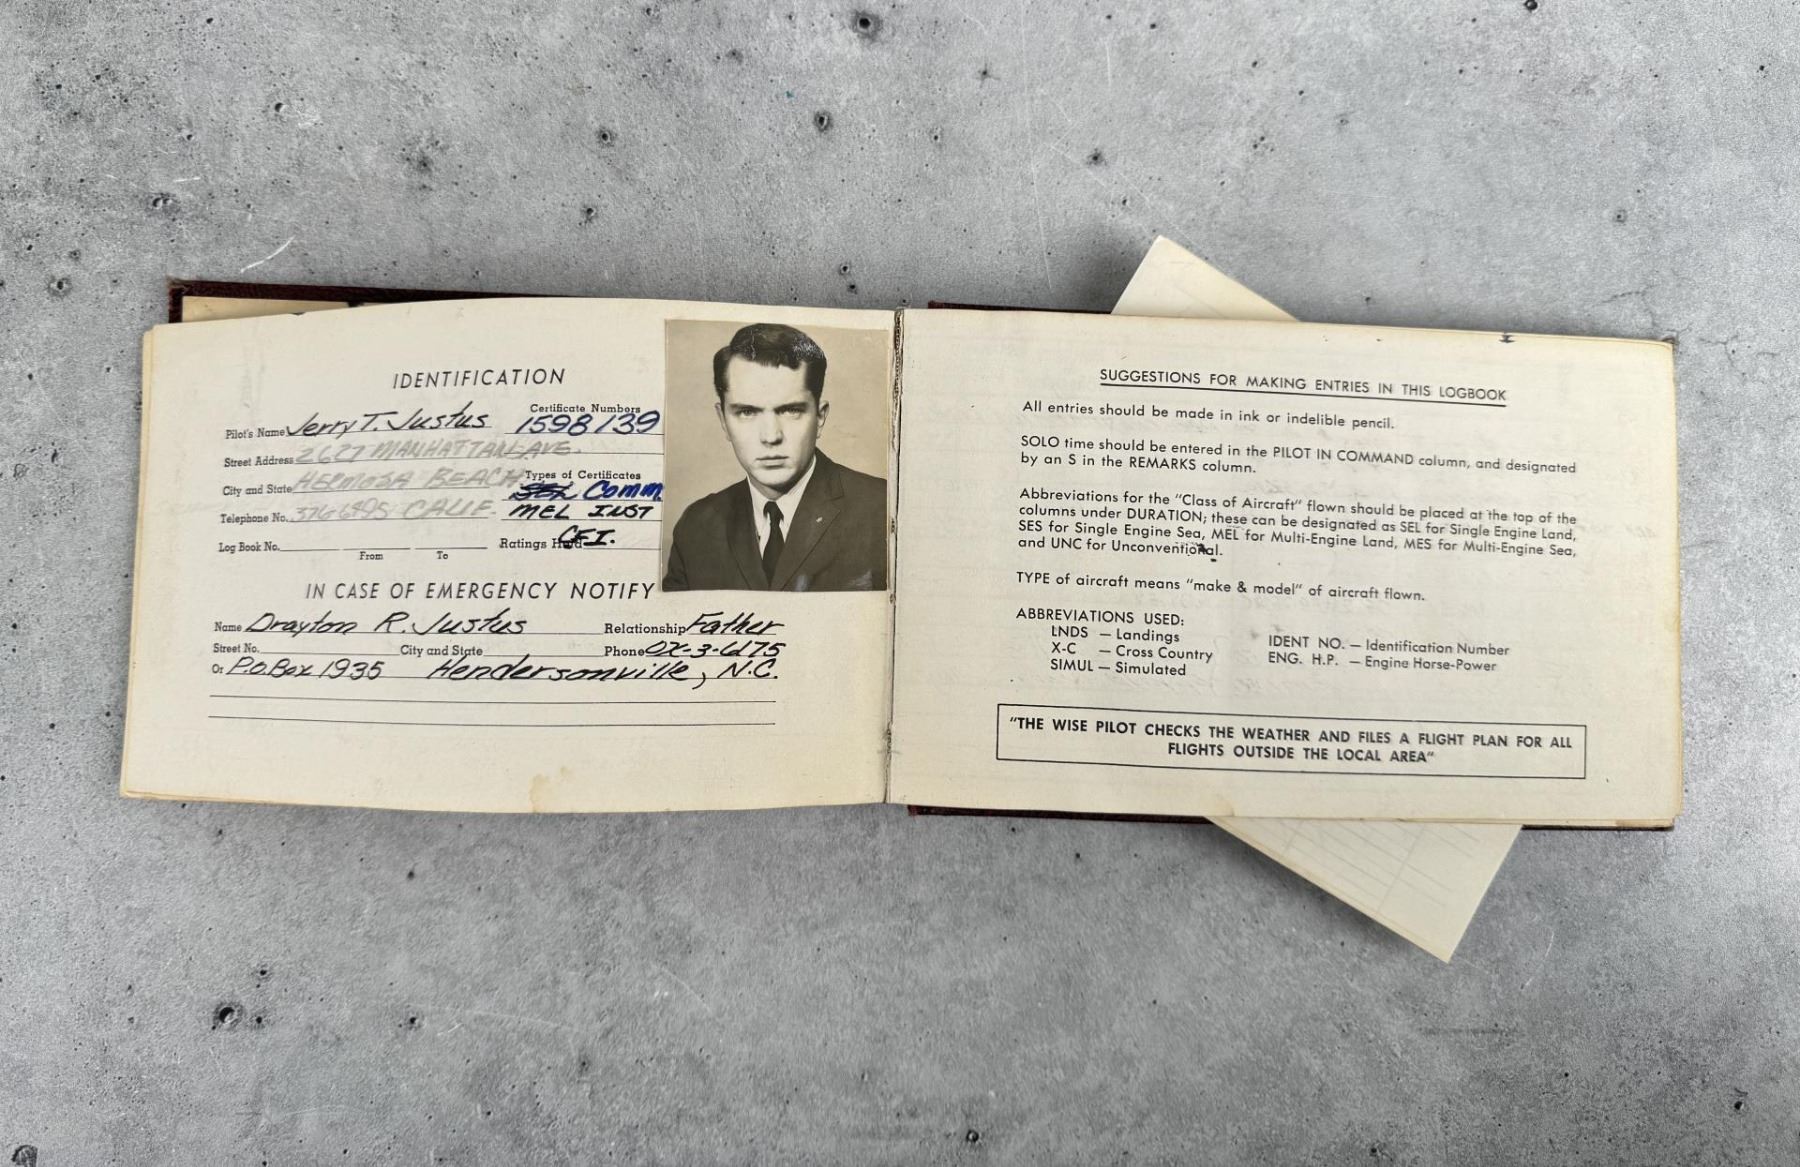 IDENTIFICATION
Pilot's Name Jerry T. Justus
Certificate Numbers
1598139
Street Address 2627 MANHATTAN AVE.
City and State HERMOSA BEACH
Types of Certificates
Comm
Telephone No. CALIF.
MEL INST
Log Book No. From To
Ratings Held CFI.
IN CASE OF EMERGENCY NOTIFY
Name Drayton R. Justus Relationship Father
Street No. City and State Phone OX-3-6175
Or P.O. Box 1935 Hendersonville, N.C.
SUGGESTIONS FOR MAKING ENTRIES IN THIS LOGBOOK
All entries should be made in ink or indelible pencil.
SOLO time should be entered in the PILOT IN COMMAND column, and designated
by an S in the REMARKS column.
Abbreviations for the "Class of Aircraft" flown should be placed at the top of the
columns under DURATION; these can be designated as SEL for Single Engine Land,
SES for Single Engine Sea, MEL for Multi-Engine Land, MES for Multi-Engine Sea,
and UNC for Unconventional.
TYPE of aircraft means "make & model" of aircraft flown.
ABBREVIATIONS USED:
LNDS — Landings
X-C — Cross Country
SIMUL — Simulated
IDENT NO. — Identification Number
ENG. H.P. — Engine Horse-Power
"THE WISE PILOT CHECKS THE WEATHER AND FILES A FLIGHT PLAN FOR ALL
FLIGHTS OUTSIDE THE LOCAL AREA"